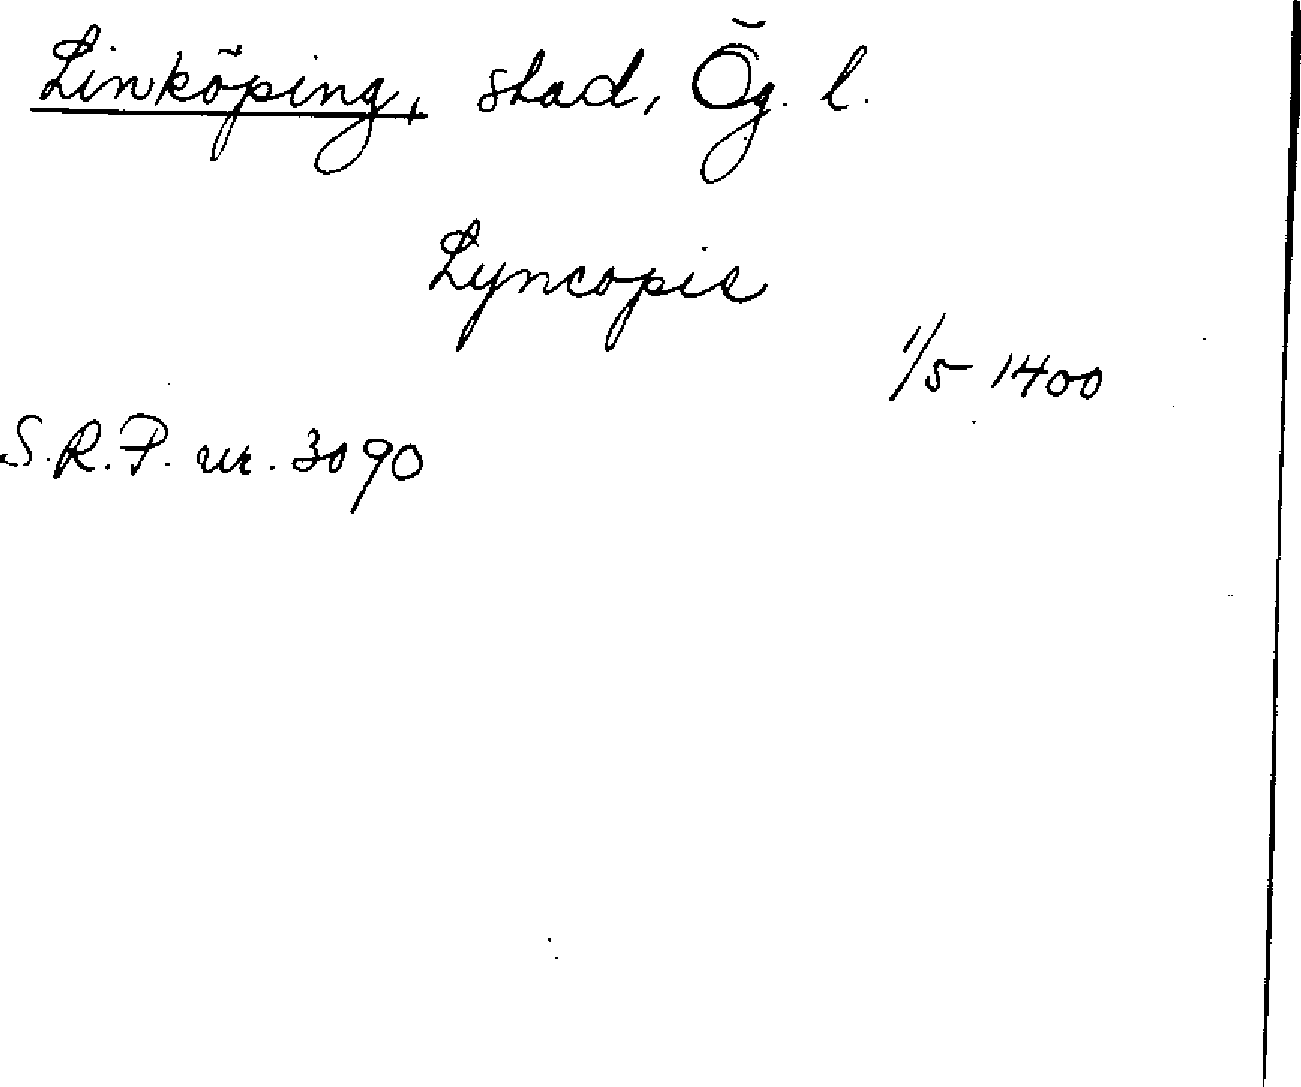 Linköping, stad, Ög. l.
Lyncopis
1/5 1400
S.R.P. nr. 3090